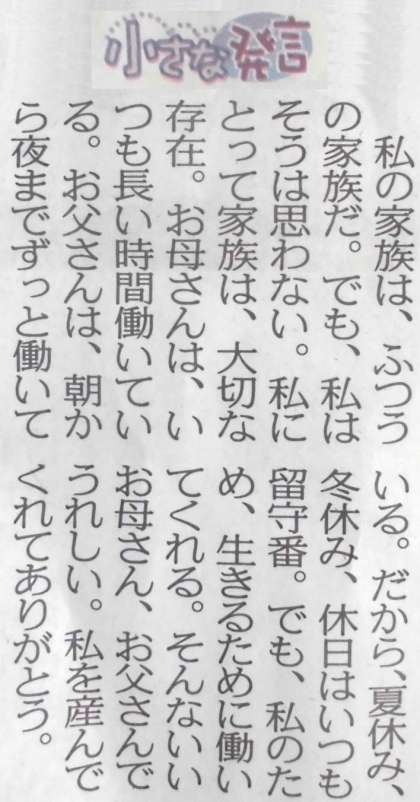 小さな発言
私の家族は、ふつう
の家族だ。でも、私は
そうは思わない。私に
とって家族は、大切な
存在。お母さんは、い
つも長い時間働いてい
る。お父さんは、朝か
ら夜までずっと働いて
いる。だから、夏休み、
冬休み、休日はいつも
留守番。でも、私のた
め、生きるために働い
てくれる。そんないい
お母さん、お父さんで
うれしい。私を産んで
くれてありがとう。